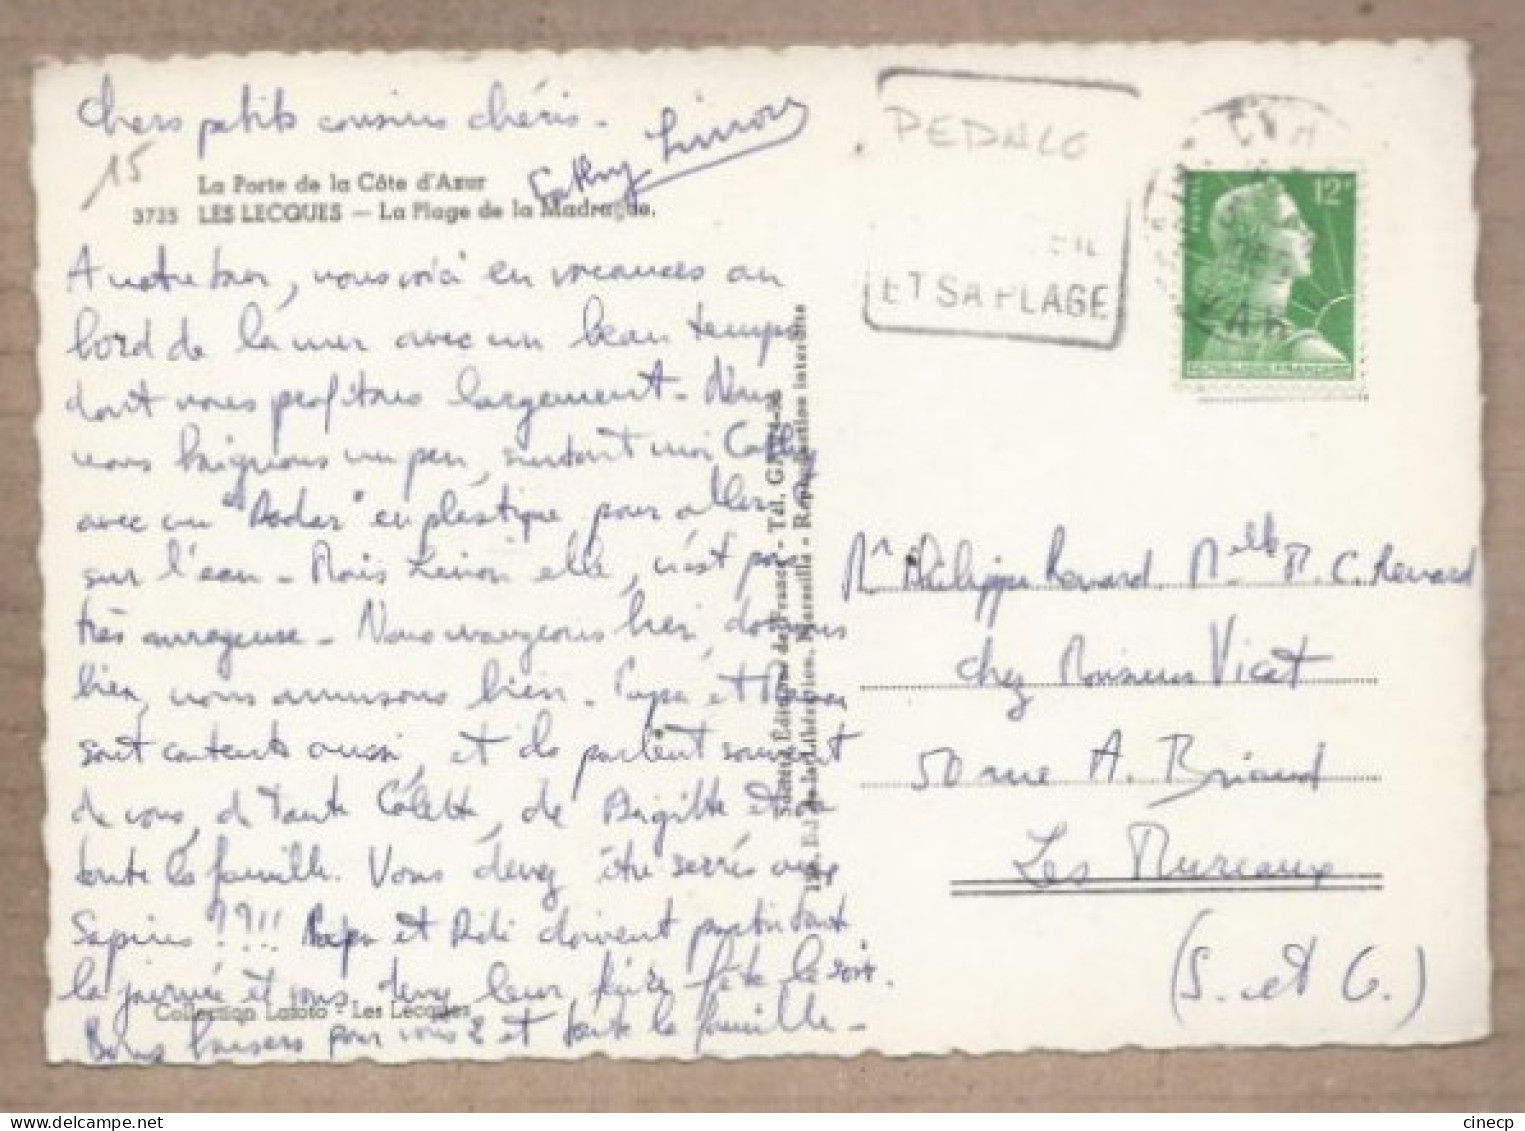 Chers petits cousins chéris -
Cathy Linon
15
La Porte de la Côte d'Azur
3735 LES LECQUES — La Plage de la Madrague.
A notre tour, nous voici en vacances au
bord de la mer avec un beau temps
dont nous profitons largement - Nous
nous baignons un peu, surtout moi Cathy
avec un " " en plastique pour aller
sur l'eau - Mais Linon elle, n'est pas
très courageuse - Nous mangeons bien, dormons
bien, nous amusons bien - Papa et Maman
sont contents aussi, et ils parlent souvent
de vous, de Tante Colette, de Brigitte et de
toute la famille. Vous devez être serrés aux
Sapins ??!!! Papa et Didi doivent partir toute
la journée et vous devez leur faire fête le soir.
Collection Lafoto - Les Lecques
Bons baisers pour vous 2 et toute la famille -
Editions de France - Tél.
de la Libération, Marseille - Reproduction interdite
PEDALO
ET SA PLAGE
VAR
12F
POSTES
REPUBLIQUE FRANÇAISE
Mr Philippe Renard Melle M. C. Renard
chez Monsieur Vicat
50 rue A. Briand
Les Mureaux
(S. et O.)
delcampe.net
cinecp